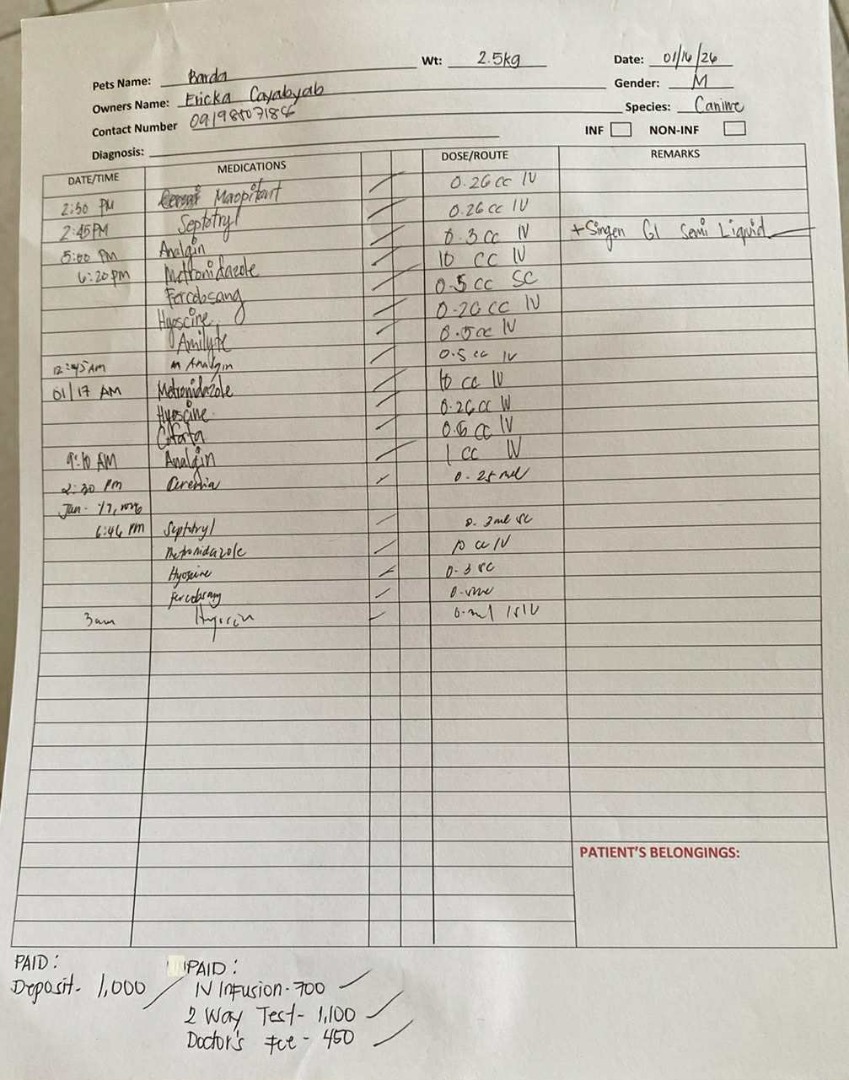 Pets Name: Barda Wt: 2.5kg Date: 01/16/26
Owners Name: Ericka Cayabyab Gender: M
Contact Number Species: Canine
Diagnosis: INF NON-INF
DATE/TIME MEDICATIONS DOSE/ROUTE REMARKS
2:30 PM Maropitant 0.26 cc IV
2:45PM Septotryl 0.26 cc IV
5:00 PM Analgin 0.3 cc IV + Singen GI Semi Liquid
6:20pm Metronidazole 10 cc IV
Fercobsang 0.5 cc SC
Hyoscine 0.26 cc IV
Amilyte 0.5cc IV
12:45AM Analgin 0.5 cc IV
01/17 AM Metronidazole 10 cc IV
Hyoscine 0.26 cc IV
0.5 cc IV
9:10 AM Analgin 1 cc IV
2:30 PM Cerenia 0.25 ml
Jan.
6:46 PM Septotryl 0.3ml SC
Metronidazole 10 cc IV
Hyoscine 0.3 SC
Fercobsang
3am Hyoscin
PATIENT'S BELONGINGS:
PAID: PAID:
Deposit- 1,000 IV Infusion-700
2 Way Test- 1,100
Doctor's Fee - 450